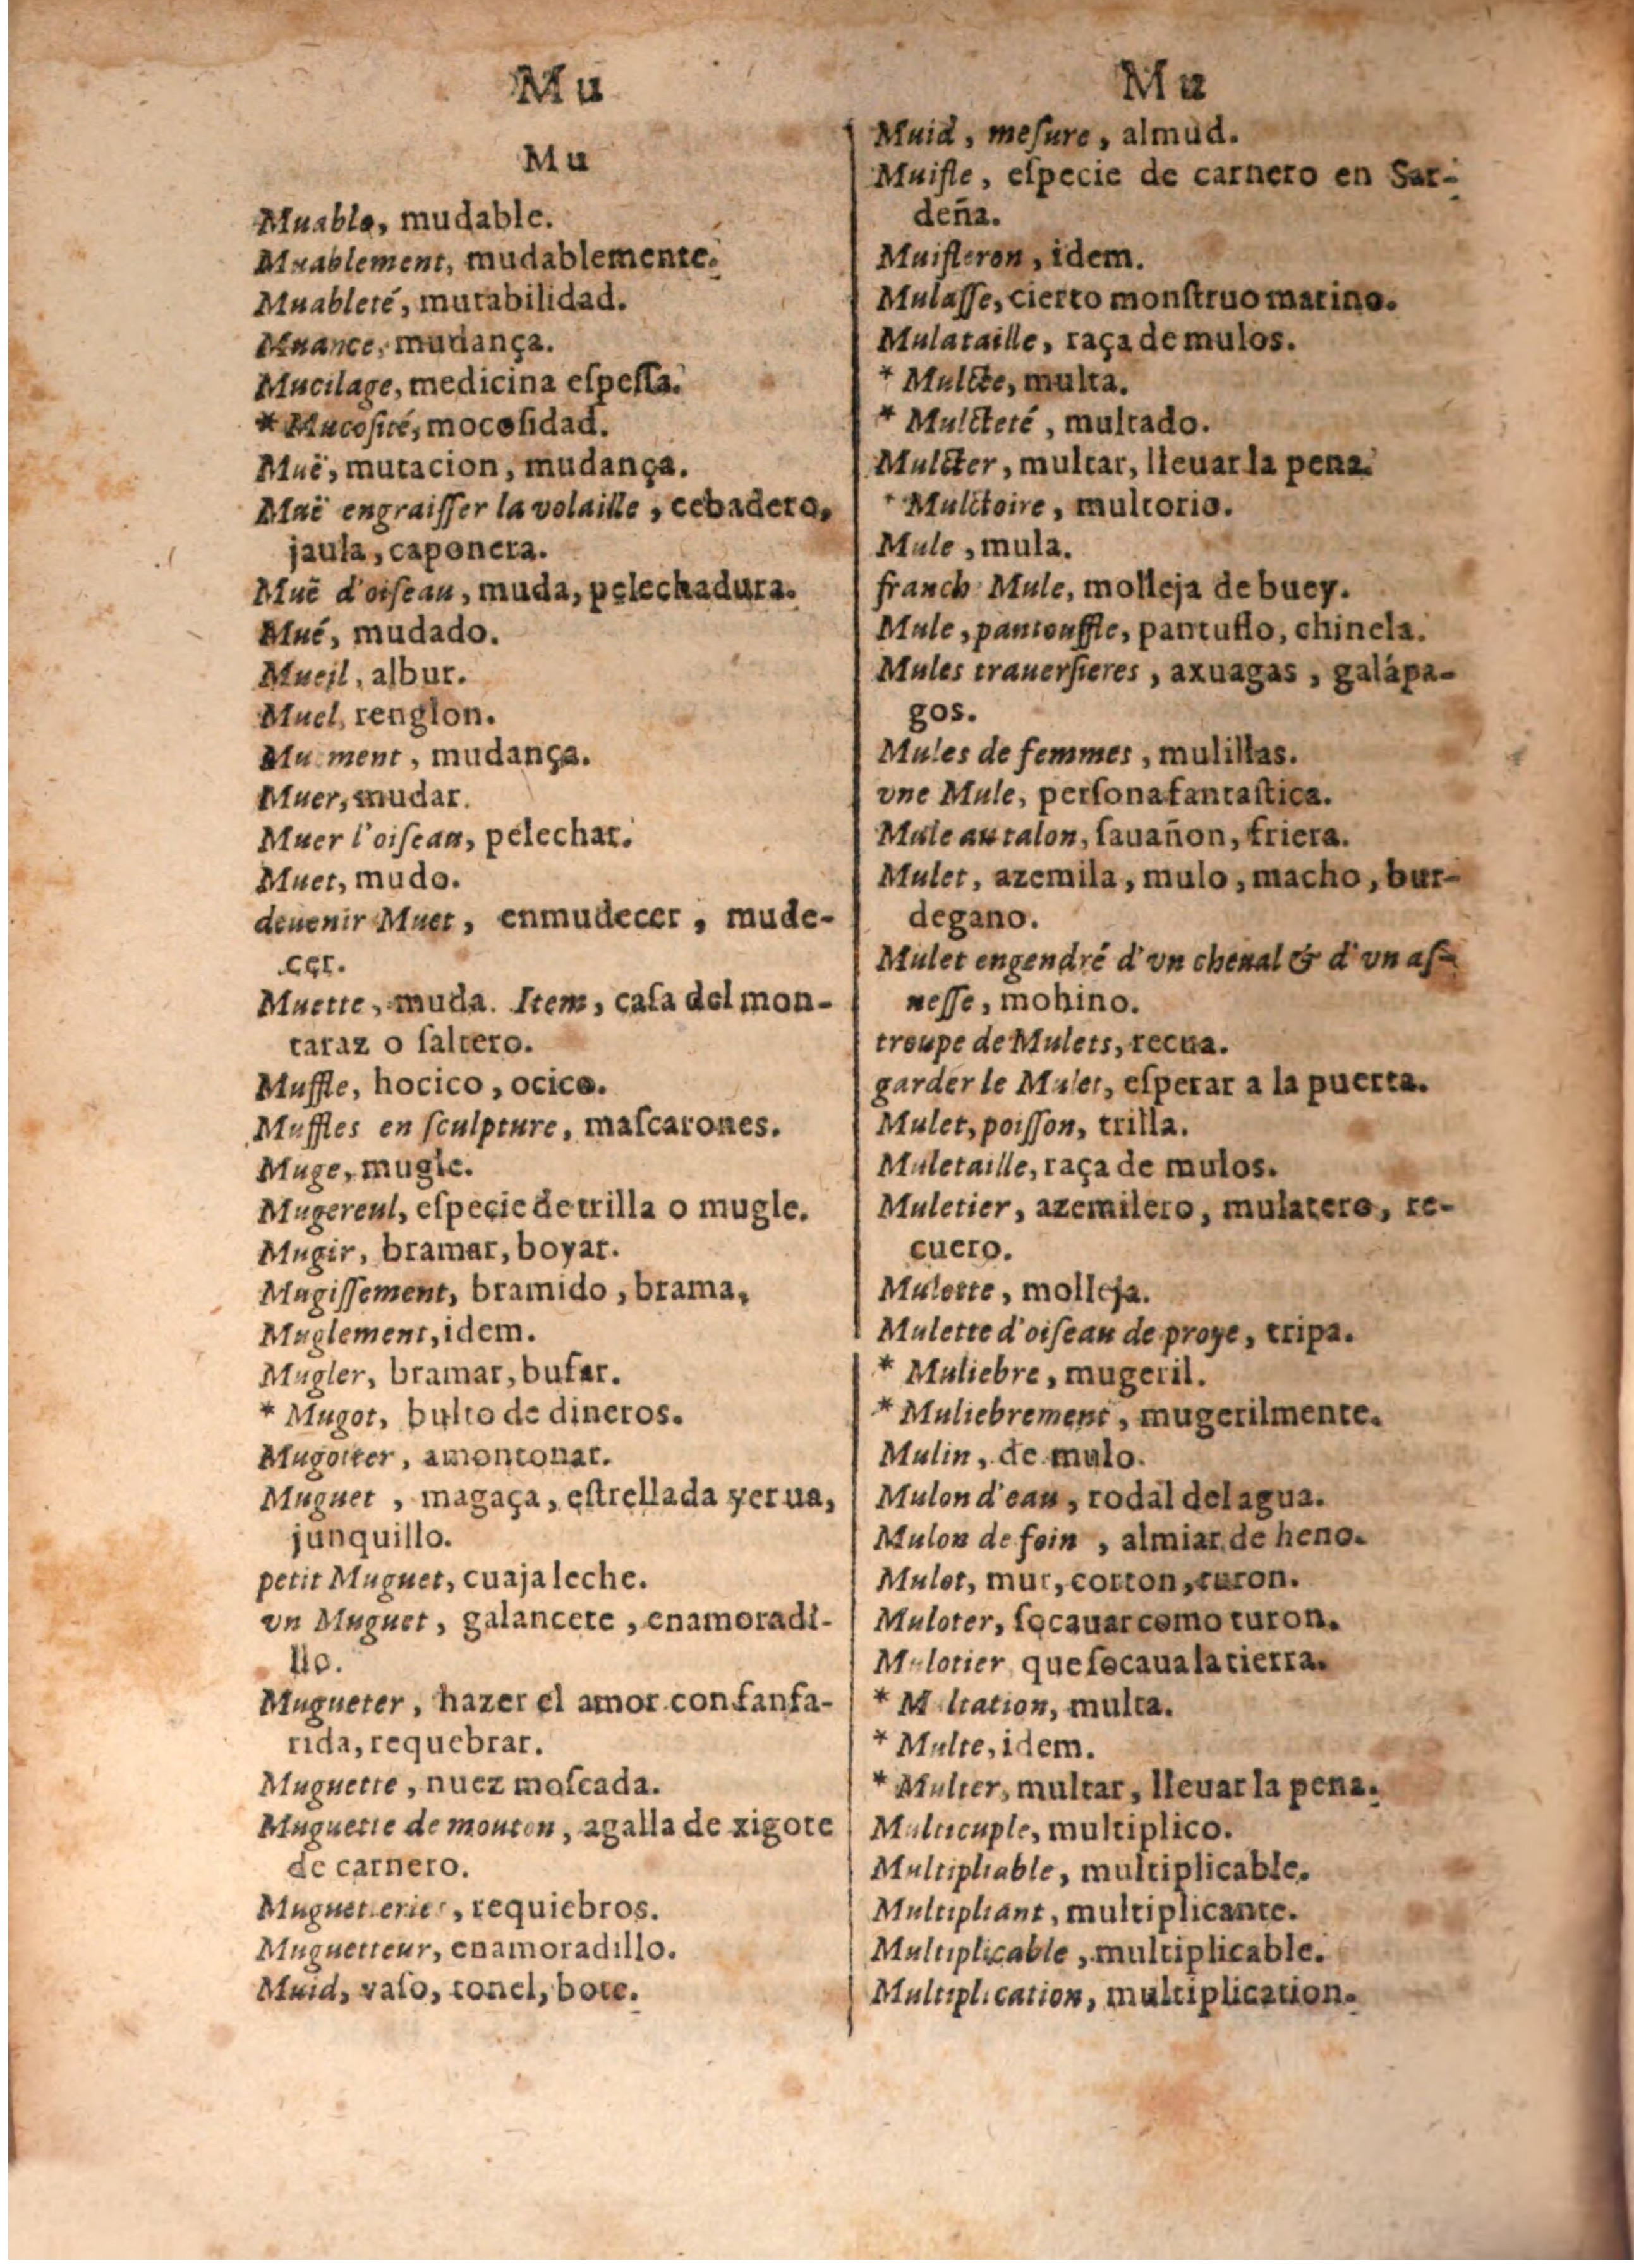 Mu
Mu
Mu
Muable, mudable.
Muablement, mudablemente.
Muableté, mutabilidad.
Muance, mudança.
Mucilage, medicina eſpeſſa.
* Mucoſité, mocoſidad.
Muë, mutacion, mudança.
Muë engraiſſer la volaille, cebadero,
jaula, caponera.
Muë d'oiſeau, muda, pelechadura.
Mué, mudado.
Mueil, albur.
Muel, renglon.
ment, mudança.
Muer, mudar.
Muer l'oiſeau, pelechar.
Muet, mudo.
deuenir Muet, enmudecer, mude-
cer.
Muette, muda. Item, caſa del mon-
taraz o ſaltero.
Muffle, hocico, ocico.
Muffles en ſculpture, maſcarones.
Muge, mugle.
Mugereul, eſpecie de trilla o mugle.
Mugir, bramar, boyar.
Mugiſſement, bramido, brama,
Muglement, idem.
Mugler, bramar, bufar.
* Mugot, bulto de dineros.
Mugotter, amontonar.
Muguet, magaça, eſtrellada yerua,
junquillo.
petit Muguet, cuajaleche.
vn Muguet, galancete, enamoradi-
llo.
Mugueter, hazer el amor con fanfa-
rida, requebrar.
Muguette, nuez moſcada.
Muguette de mouton, agalla de xigote
de carnero.
Muguetteries, requiebros.
Muguetteur, enamoradillo.
Muid, vaſo, tonel, bote.
Muid, meſure, almud.
Muifle, eſpecie de carnero en Sar-
deña.
Muifleron, idem.
Mulaſſe, cierto monſtruo marino.
Mulataille, raça de mulos.
* Mulcte, multa.
* Mulcteté, multado.
Mulcter, multar, lleuar la pena.
* Mulctoire, multorio.
Mule, mula.
franch Mule, molleja de buey.
Mule, pantouffle, pantuflo, chinela.
Mules trauerſieres, axuagas, galápa-
gos.
Mules de femmes, mulillas.
vne Mule, perſona fantaſtica.
Mule au talon, ſauañon, friera.
Mulet, azemila, mulo, macho, bur-
degano.
Mulet engendré d'vn cheual & d'vn aſ-
neſſe, mohino.
troupe de Mulets, recua.
garder le Mulet, eſperar a la puerta.
Mulet, poiſſon, trilla.
Muletaille, raça de mulos.
Muletier, azemilero, mulatero, re-
cuero.
Mulette, molleja.
Mulette d'oiſeau de proye, tripa.
* Muliebre, mugeril.
* Muliebrement, mugerilmente.
Mulin, de mulo.
Mulon d'eau, rodal del agua.
Mulon de foin, almiar de heno.
Mulot, mur, corton, turon.
Muloter, ſocauar como turon.
Mulotier, que ſocaua la tierra.
* Multation, multa.
* Multe, idem.
* Multer, multar, lleuar la pena.
Multicuple, multiplico.
Multipliable, multiplicable.
Multipliant, multiplicante.
Multiplicable, multiplicable.
Multiplication, multiplication.